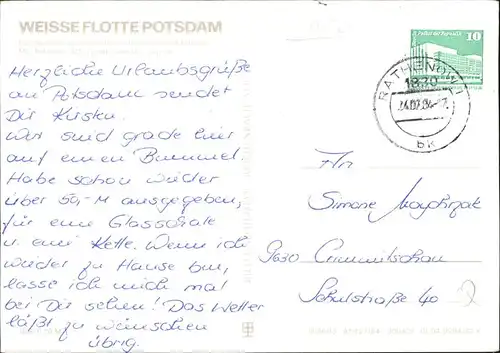 WEISSE FLOTTE POTSDAM
Herzliche Urlaubsgrüße
au Potsdam sendet
Dir
Wir sind grade hier
auf einen Bummel.
Habe schon wieder
über 50,-M ausgegeben,
für eine Glasschale
u. eine Kette. Wenn ich
wieder zu Hause bin,
lasse ich mich mal
bei Dir sehen! Das Wetter
läßt zu wünschen
übrig.
10
RATHENOW 1
1830
bk
An
Simone
9630 Crimmitschau
Schulstraße 40